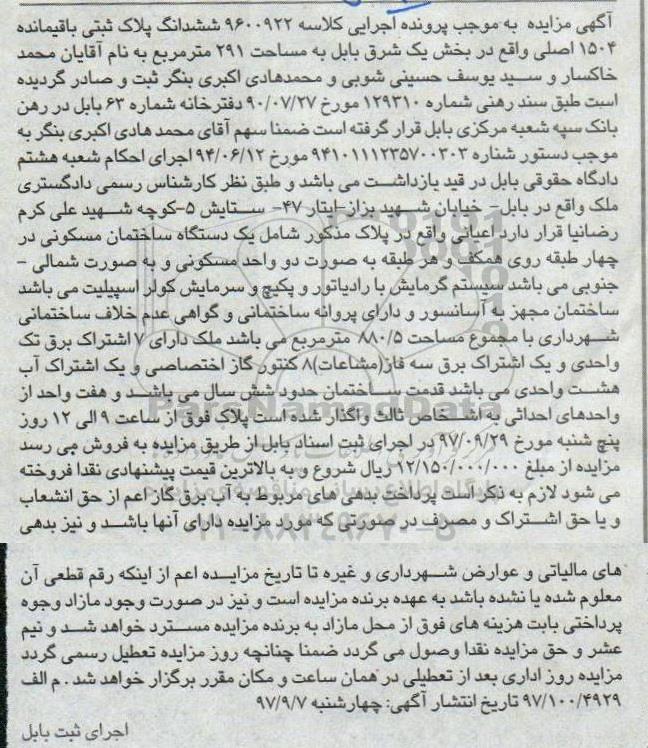 آگهی مزایده به موجب پرونده اجرایی کلاسه ۹۶۰۰۹۲۲ ششدانگ پلاک ثبتی باقیمانده
۱۵۰۴ اصلی واقع در بخش یک شرق بابل به مساحت ۲۹۱ مترمربع به نام آقایان محمد
خاکسار و سید یوسف حسینی شوبی و محمدهادی اکبری بنگر ثبت و صادر گردیده
است طبق سند رهنی شماره ۱۲۹۳۱۰ مورخ ۹۰/۰۷/۲۷ دفترخانه شماره ۶۳ بابل در رهن
بانک سپه شعبه مرکزی بابل قرار گرفته است ضمنا سهم آقای محمد هادی اکبری بنگر به
موجب دستور شناره ۹۴۱۰۱۱۱۲۳۵۷۰۰۳۰۳ مورخ ۹۴/۰۶/۱۲ اجرای احکام شعبه هشتم
دادگاه حقوقی بابل در قید بازداشت می باشد و طبق نظر کارشناس رسمی دادگستری
ملک واقع در بابل- خیابان شهید بزاز-ایثار ۴۷- ستایش ۵-کوچه شهید علی کرم
رضانیا قرار دارد اعیانی واقع در پلاک مذکور شامل یک دستگاه ساختمان مسکونی در
چهار طبقه روی همکف و هر طبقه به صورت دو واحد مسکونی و به صورت شمالی -
جنوبی می باشد سیستم گرمایش با رادیاتور و پکیج و سرمایش کولر اسپیلیت می باشد
ساختمان مجهز به آسانسور و دارای پروانه ساختمانی و گواهی عدم خلاف ساختمانی
شهرداری با مجموع مساحت ۸۸۰/۵ مترمربع می باشد ملک دارای ۷ اشتراک برق تک
واحدی و یک اشتراک برق سه فاز(مشاعات)۸ کنتور گاز اختصاصی و یک اشتراک آب
هشت واحدی می باشد قدمت ساختمان حدود شش سال می باشد و هفت واحد از
واحدهای احداثی به اشخاص ثالث واگذار شده است پلاک فوق از ساعت ۹ الی ۱۲ روز
پنج شنبه مورخ ۹۷/۰۹/۲۹ در اجرای ثبت اسناد بابل از طریق مزایده به فروش می رسد
مزایده از مبلغ ۱۲/۱۵۰/۰۰۰/۰۰۰ ریال شروع و به بالاترین قیمت پیشنهادی نقدا فروخته
می شود لازم به ذکر است پرداخت بدهی های مربوط به آب برق گاز اعم از حق انشعاب
و یا حق اشتراک و مصرف در صورتی که مورد مزایده دارای آنها باشد و نیز بدهی
های مالیاتی و عوارض شهرداری و غیره تا تاریخ مزایده اعم از اینکه رقم قطعی آن
معلوم شده یا نشده باشد به عهده برنده مزایده است و نیز در صورت وجود مازاد وجوه
پرداختی بابت هزینه های فوق از محل مازاد به برنده مزایده مسترد خواهد شد و نیم
عشر و حق مزایده نقدا وصول می گردد ضمنا چنانچه روز مزایده تعطیل رسمی گردد
مزایده روز اداری بعد از تعطیلی در همان ساعت و مکان مقرر برگزار خواهد شد . م الف
۹۷/۱۰۰/۴۹۲۹ تاریخ انتشار آگهی: چهارشنبه ۹۷/۹/۷
اجرای ثبت بابل